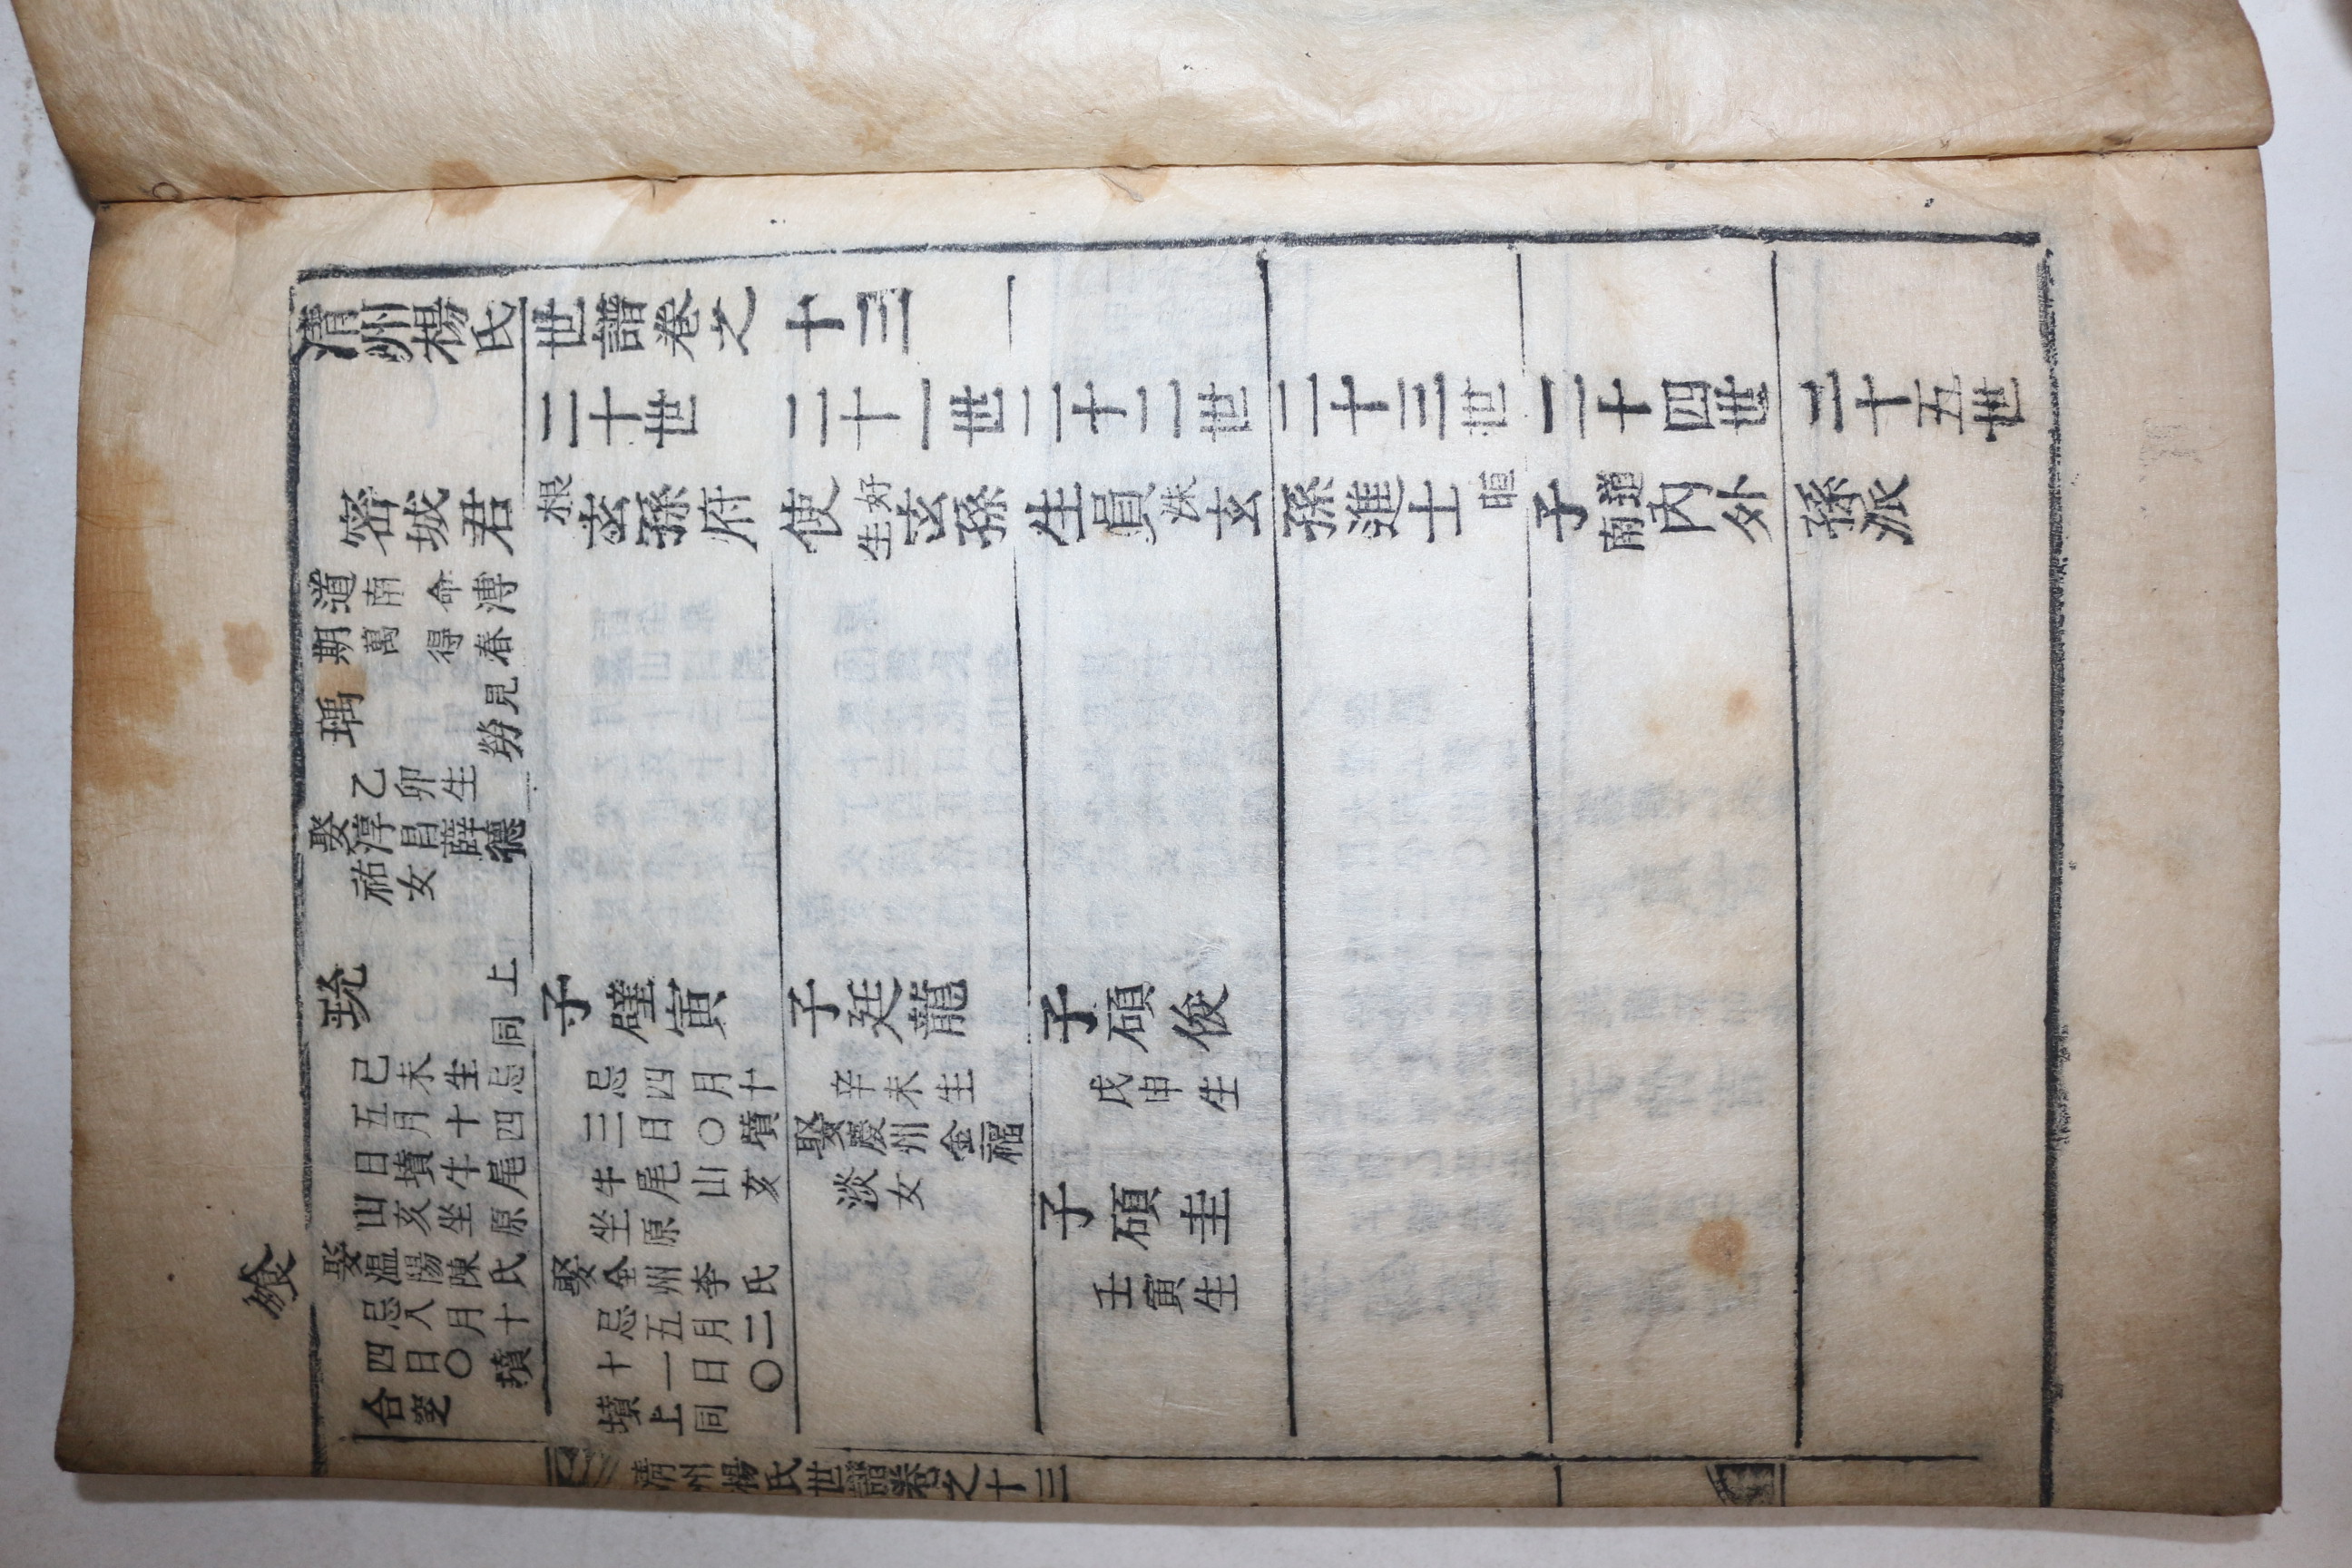 清州楊氏世譜卷之十三 一
二十世 二十一世 二十二世 二十三世 二十四世 二十五世
密城君根玄孫府使好生玄孫生員洙玄孫進士晅子道南內外孫派
道南 命溥
期萬 得春
瑀 見
乙卯生
娶淳昌薛德
祐女
珫 同上
己未生忌
五月十四
日墳牛尾
山亥坐原
娶溫陽陳氏
忌八月十
四日〇墳
合窆
子璧寅
忌四月十
三日〇墳
牛尾山亥
坐原
娶全州李氏
忌五月二
十一日〇
墳上同
子廷龍
辛未生
娶慶州金福
淡女
子碩俊
戊申生
子碩圭
壬寅生
清州楊氏世譜卷之十三 一